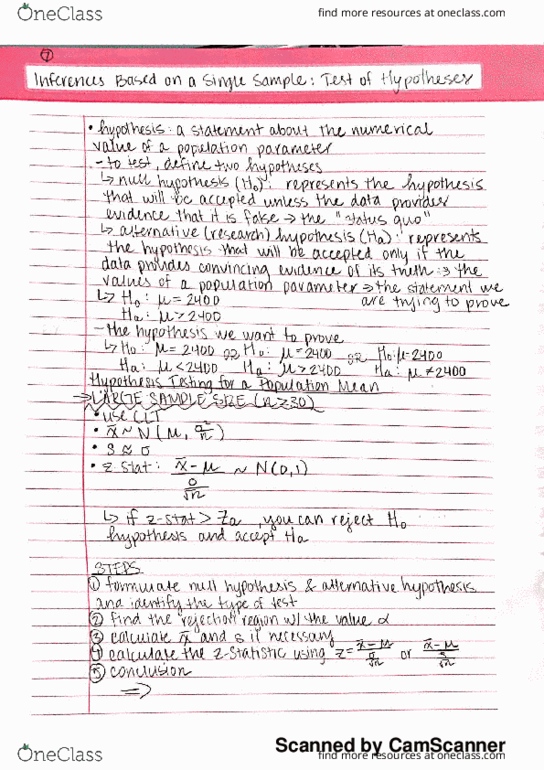 OneClass
find more resources at oneclass.com
7
Inferences Based on a Single Sample: Test of Hypotheses
• hypothesis: a statement about the numerical
value of a population parameter
- to test, define two hypotheses
↳ null hypothesis (H₀): represents the hypothesis
that will be accepted unless the data provides
evidence that it is false → the "status quo"
↳ alternative (research) hypothesis (Ha): represents
the hypothesis that will be accepted only if the
data provides convincing evidence of its truth → the
values of a population parameter → the statement we
are trying to prove
↳ H₀: μ = 2400
Ha: μ > 2400
- the hypothesis we want to prove
↳ H₀: μ = 2400 OR H₀: μ = 2400 OR H₀: μ = 2400
Ha: μ < 2400 Ha: μ > 2400 Ha: μ ≠ 2400
Hypothesis Testing for a Population Mean
→ LARGE SAMPLE SIZE (n ≥ 30)
• use CLT
• x̄ ~ N(μ, σ²/n)
• s ≈ σ
• z stat: (x̄ - μ)/(σ/√n) ~ N(0,1)
↳ if z-stat > Zα, you can reject H₀
hypothesis and accept Ha
STEPS
① formulate null hypothesis & alternative hypothesis
and identify the type of test
② find the rejection region w/ the value α
③ calculate x̄ and s if necessary
④ calculate the z-statistic using z = (x̄ - μ)/(σ/√n) or (x̄ - μ)/(s/√n)
⑤ conclusion
⇒
Scanned by CamScanner
OneClass
find more resources at oneclass.com